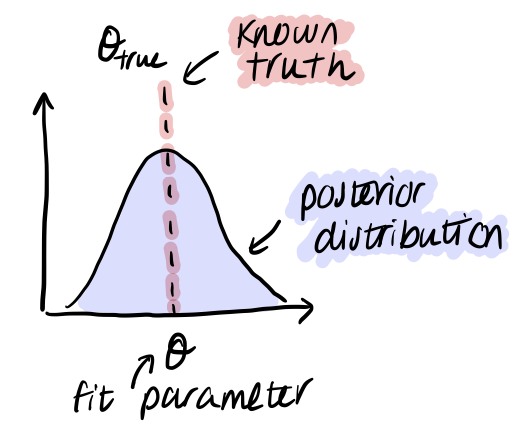 θtrue
known
truth
posterior
distribution
θ
fit parameter